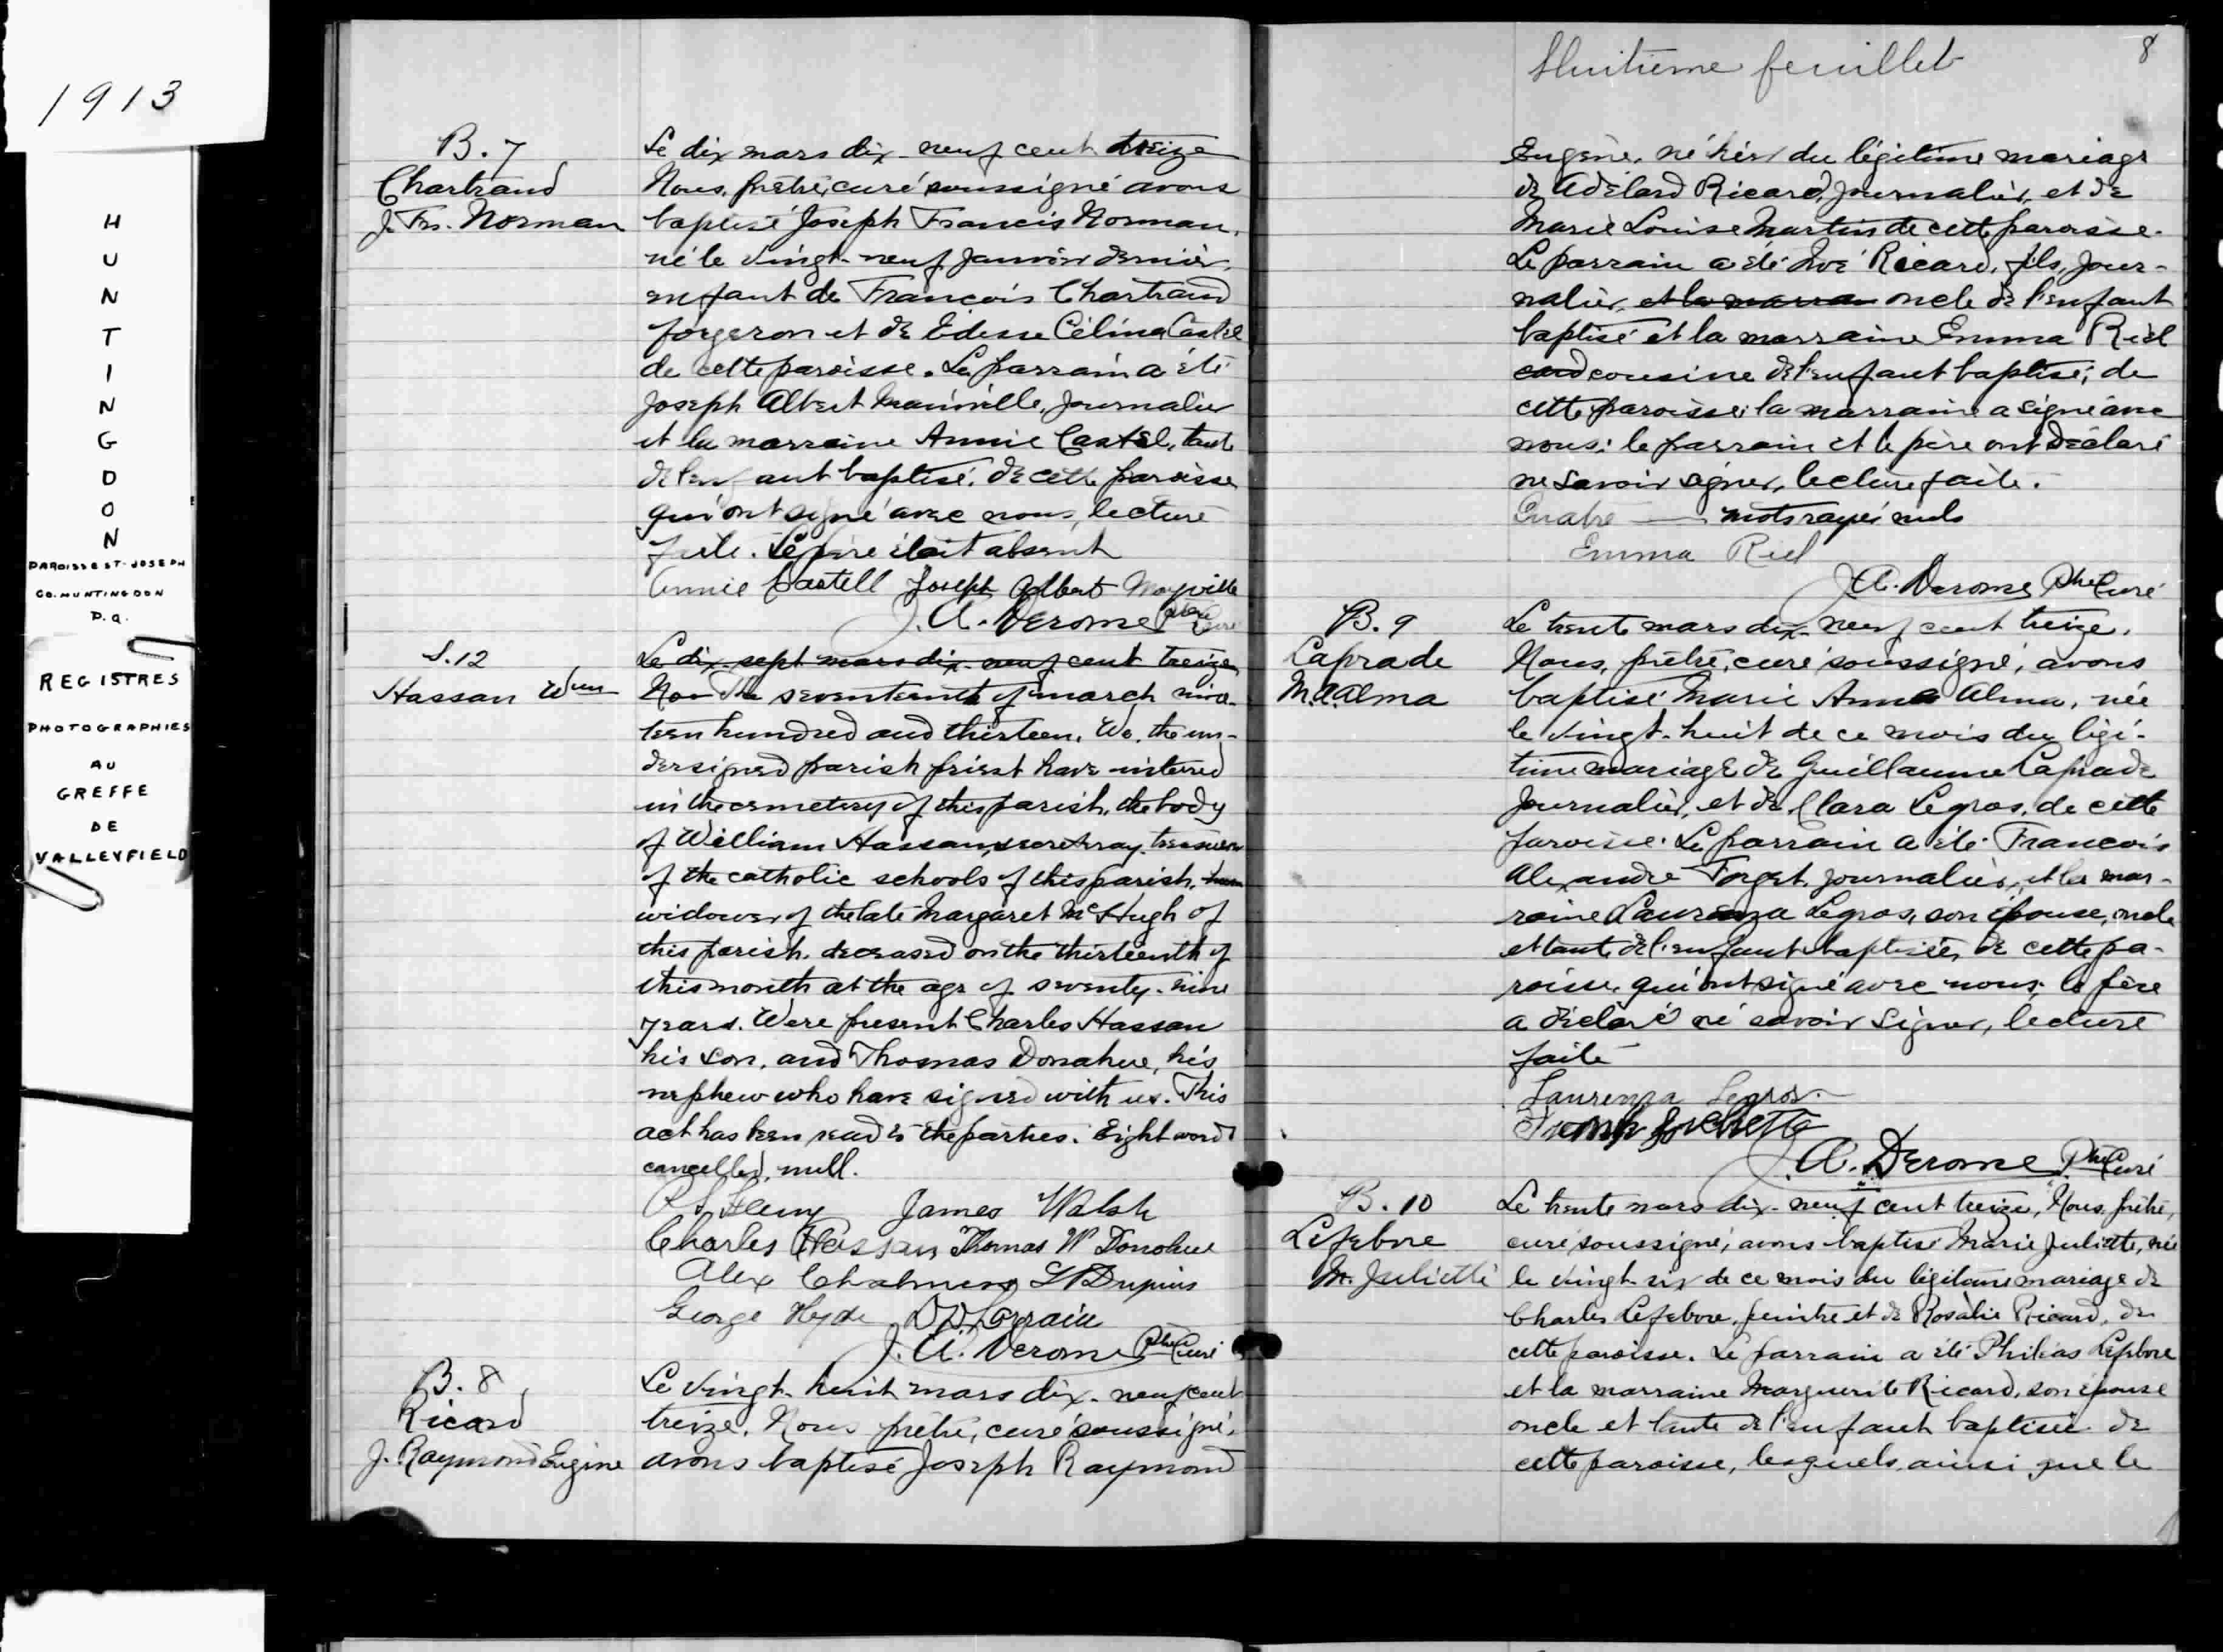 1913
HUNTINGDON
PAROISSE ST-JOSEPH
CO. HUNTINGDON
P.Q.
REGISTRES
PHOTOGRAPHIES
AU
GREFFE
DE
VALLEYFIELD
B. 7
Chartrand
J. Frs. Norman
Le dix mars dix-neuf cent treize
Nous, prêtre, curé soussigné avons
baptisé Joseph Francis Norman,
né le vingt-neuf janvier dernier,
enfant de François Chartrand
forgeron et de Edesse Célina Castel
de cette paroisse. Le parrain a été
Joseph Albert Mainville, journalier
et la marraine Annie Castel, tante
de l'enfant baptisé, de cette paroisse
qui ont signé avec nous, lecture
faite. Le père était absent
Annie Castell Joseph Albert Mayville
J. A. Derome Ptre Curé
S. 12
Hassan Wm
Le dix-sept mars dix-neuf cent treize
Nou The seventeenth of march nine-
teen hundred and thirteen, We, the un-
dersigned parish priest have interred
in the cemetery of this parish, the body
of William Hassan, secretray-treasurer
of the catholic schools of this parish,
widower of the late Margaret McHugh of
this parish, deceased on the thirteenth of
this month at the age of seventy-nine
years. Were present Charles Hassan
his son, and Thomas Donahue, his
nephew who have signed with us. This
act has been read to the parties. Eight words
cancelled, null.
James Walsh
Charles Hassan Thomas W Donohue
Alex Chalmers Dupuis
George Hyde Lorrain
J. A. Derome Ptre Curé
B. 8
Ricard
J. Raymond Eugène
Le vingt-huit mars dix-neuf cent
treize, Nous prêtre, curé soussigné,
avons baptisé Joseph Raymond
Huitième feuillet
8
Eugène, né hier du légitime mariage
de Adélard Ricard, journalier, et de
Marie Louise Martin de cette paroisse.
Le parrain a été Noé Ricard, fils, jour-
nalier, et la marran oncle de l'enfant
baptisé et la marraine Emma Riel
card cousine de l'enfant baptisé, de
cette paroisse; la marraine a signé avec
nous; le parrain et le père ont déclaré
ne savoir signer, lecture faite.
Quatre — mots rayés nuls
Emma Riel
J. A. Derome Ptre Curé
B. 9
Laprade
M. A. Alma
Le trente mars dix-neuf cent treize,
Nous, prêtre, curé soussigné, avons
baptisé Marie Anna Alma, née
le vingt-huit de ce mois du légi-
time mariage de Guillaume Laprade
journalier, et de Clara Legros, de cette
paroisse. Le parrain a été François
Alexandre Forget, journalier, et la mar-
raine Laurenza Legros, son épouse, oncle
et tante de l'enfant baptisée, de cette pa-
roisse, qui ont signé avec nous; le père
a déclaré ne savoir signer, lecture
faite
Laurenza Legros
J. A. Derome Ptre Curé
B. 10
Lefebvre
M. Juliette
Le trente mars dix-neuf cent treize, Nous, prêtre,
curé soussigné, avons baptisé Marie Juliette, née
le vingt-six de ce mois du légitime mariage de
Charles Lefebvre, peintre et de Rosalie Ricard, de
cette paroisse. Le parrain a été Philias Lefebvre
et la marraine Marguerite Ricard, son épouse
oncle et tante de l'enfant baptisée de
cette paroisse, lesquels ainsi que le